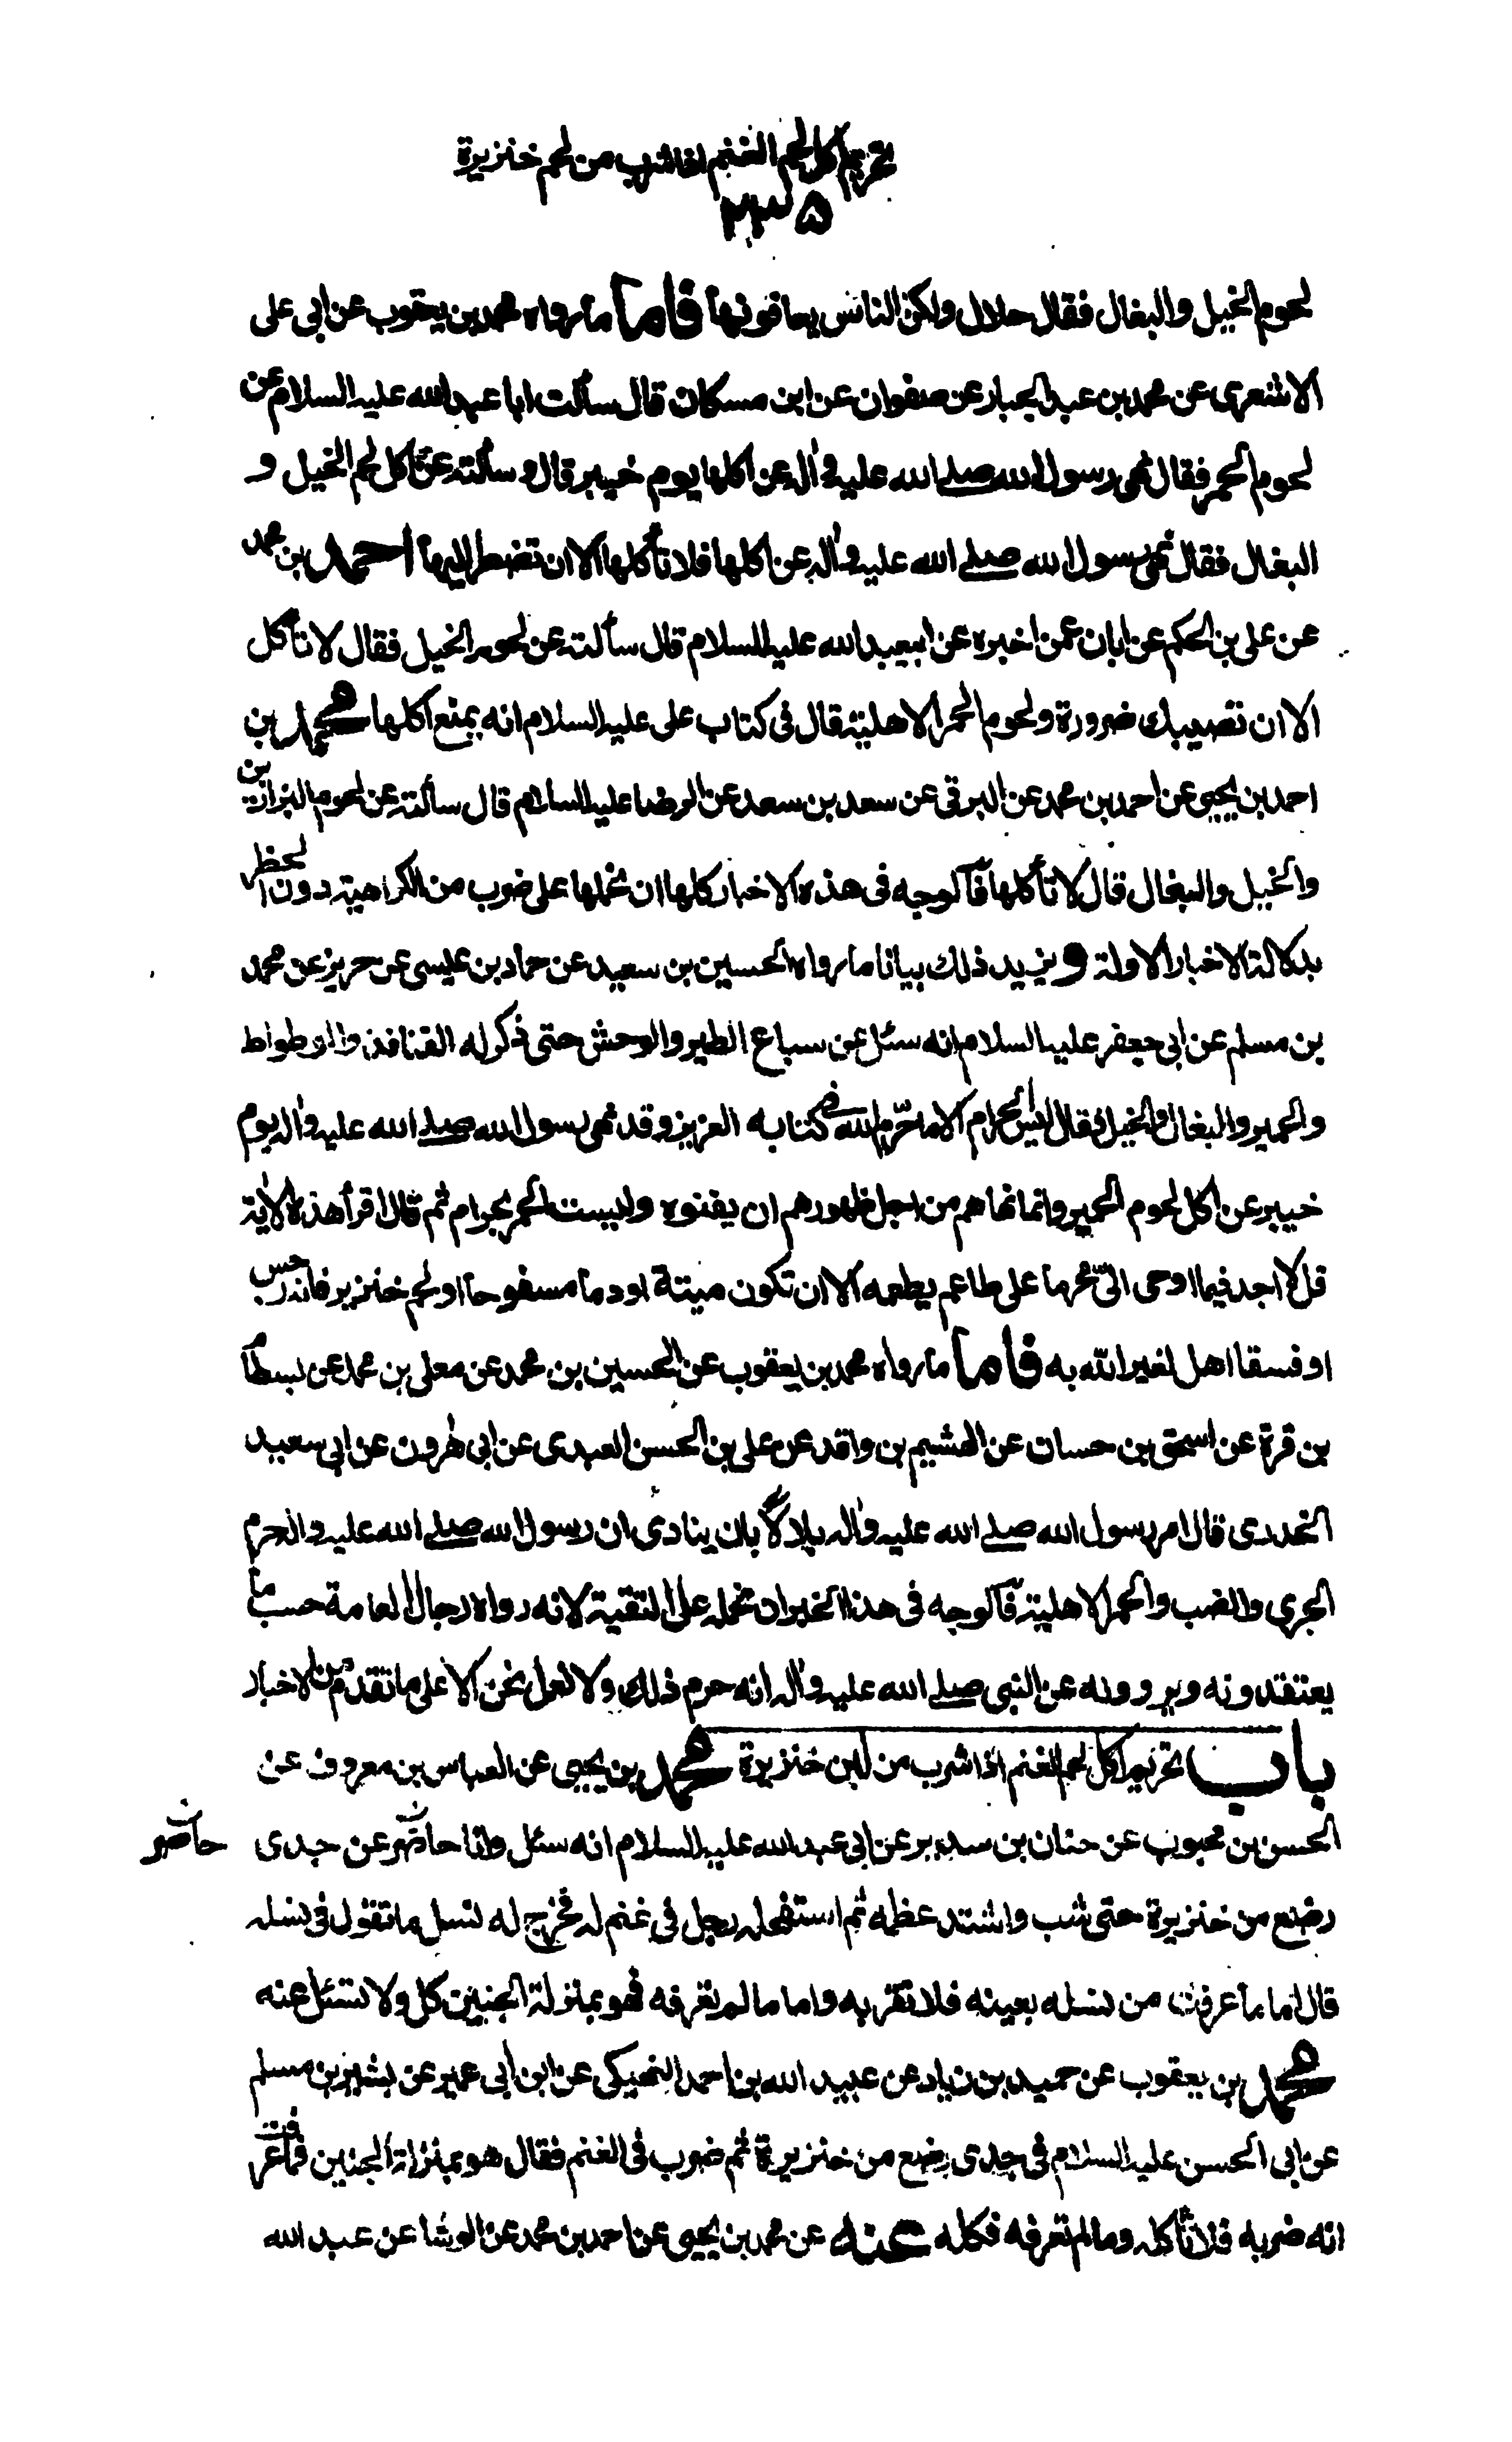 تحريم اكل لحم الغنم اذا شرب من لحم خنزيرة
٢٣٥
لحوم الخيل والبغال فقال حلال ولكن الناس يعافونها فاما ما رواه محمد بن يعقوب عن ابى على
الاشعرى عن محمد بن عبد الجبار عن صفوان عن ابن مسكان قال سألت ابا عبد الله عليه السلام عن
لحوم الحمر فقال نهى رسول الله صلى الله عليه وآله عن اكلها يوم خيبر قال وسألته عن اكل لحم الخيل و
البغال فقال نهى رسول الله صلى الله عليه وآله عن اكلها فلا تأكلها الا ان تضطر اليها احمد بن محمد
عن على بن الحكم عن ابان عمن اخبره عن ابيعبد الله عليه السلام قال سألته عن لحوم الخيل فقال لا تأكل
الا ان تصيبك ضرورة ولحوم الحمر الاهلية قال فى كتاب على عليه السلام انه يمنع اكلها محمد بن
احمد بن يحيى عن احمد بن محمد عن البرقى عن سعد بن سعد عن الرضا عليه السلام قال سألته عن لحوم البراذين
والخيل والبغال قال لا تأكلها فالوجه فى هذه الاخبار كلها ان نحملها على ضرب من الكراهية دون الحظر
بدلالة الاخبار الاولة ويزيد ذلك بيانا ما رواه الحسين بن سعيد عن حماد بن عيسى عن حريز عن محمد
بن مسلم عن ابى جعفر عليه السلام انه سئل عن سباع الطير والوحش حتى ذكر له القنافذ والوطواط
والحمير والبغال والخيل فقال ليس الحرام الا ما حرّم الله فى كتابه العزيز وقد نهى رسول الله صلى الله عليه وآله يوم
خيبر عن اكل لحوم الحمير وانما نهاهم من اجل ظهورهم ان يفنوه وليست الحمر بحرام ثم قال اقرأ هذه الآية
قل لا اجد فيما اوحى الىّ محرما على طاعم يطعمه الا ان تكون ميتة او دما مسفوحا او لحم خنزير فانه رجس
او فسقا اهل لغير الله به فاما ما رواه محمد بن يعقوب عن الحسين بن محمد عن معلى بن محمد عن بسطام
بن قرة عن اسحق بن حسان عن الهشيم بن واقد عن على بن الحسن العبدى عن ابى هرون عن ابى سعيد
الخدرى قال امر رسول الله صلى الله عليه وآله بلالا بان ينادى ان رسول الله صلى الله عليه وآله حرم
الجرى والضب والحمر الاهلية فالوجه فى هذا الخبر ان نحمله على التقية لانه رواه رجال العامة حسب ما
يعتقدونه ويروونه عن النبى صلى الله عليه وآله انه حرم ذلك ولا نعمل نحن الا على ما تقدم من الاخبار
باب تحريم اكل لحم الغنم اذا شرب من لبن خنزيرة محمد بن يحيى عن العباس بن معروف عن
الحسن بن محبوب عن حنان بن سدير عن ابى عبد الله عليه السلام انه سئل وانا حاضر عن جدى
حاضر
رضع من خنزيرة حتى شب واشتد عظمه ثم استفحله رجل فى غنم له فخرج له نسل ما تقول فى نسله
قال اما ما عرفت من نسله بعينه فلا تقربه واما ما لم تعرفه فهو بمنزلة الجنبين كل ولا تسئل عنه
محمد بن يعقوب عن حميد بن زياد عن عبيد الله بن احمد النهيكى عن ابن ابى عمير عن بشير بن مسلم
عن ابى الحسن عليه السلام فى جدى رضع من خنزيرة ثم ضرب فى الغنم فقال هو بمنزلة الجنبين فما عرفت
انه ضربه فلا تأكله وما لم تعرفه فكله عنه عن محمد بن يحيى عن احمد بن محمد عن الوشا عن عبد الله